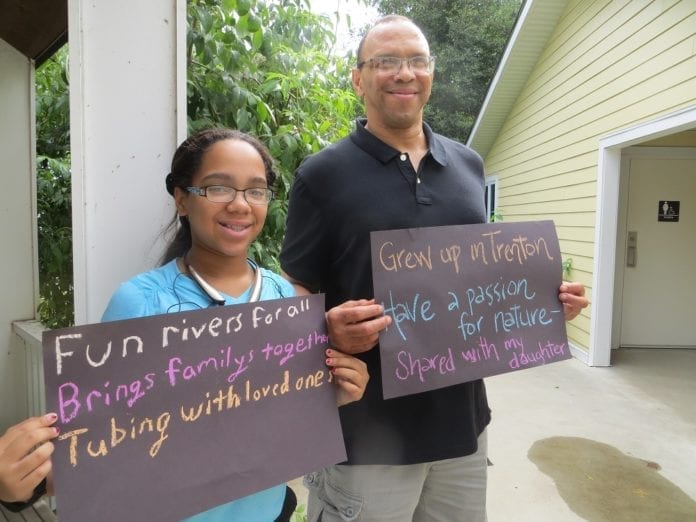 Fun rivers for all
Brings familys together
Tubing with loved ones
Grew up in Trenton
Have a passion
for nature-
Shared with my
daughter